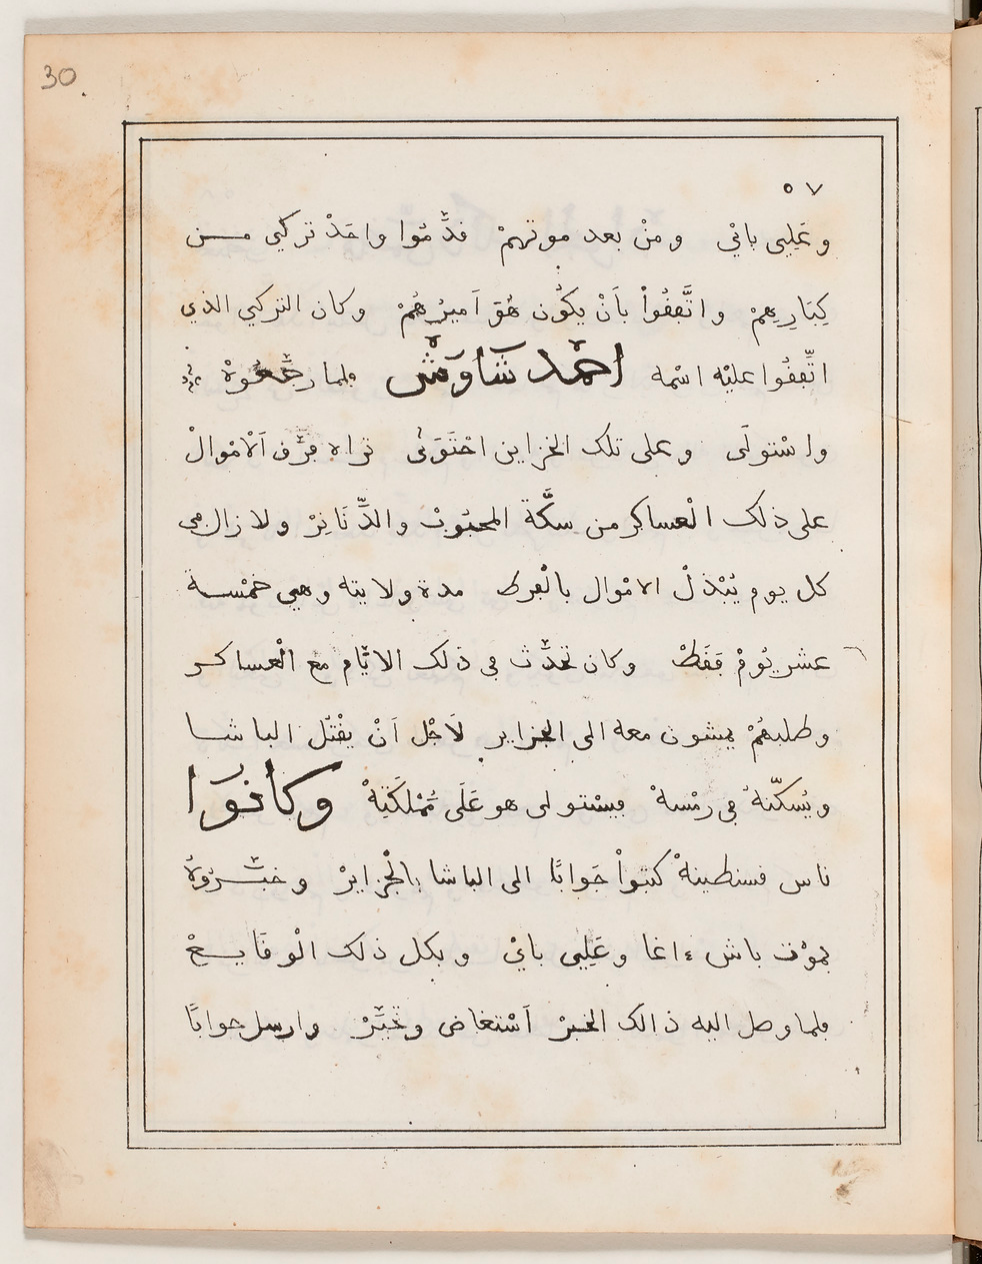 30
٥٧
وعَلِيى بائي ومنْ بعد موتهمْ قدَّمُوا واحَدْ تركي مــن
كِبَارِهِمْ واتَّفِفُواْ بَاَنْ يكُون هُوَ اَميرُهُمْ وكان التركي الذي
اتَّفِفُوا عليْه اسْمه احْمد شَاوَشْ فلما رفَّعُوهْ
واسْتولَى وعلى تلك الخزاين احْتَوَى تراه فرَّق اَلْامْوالْ
على ذلك الْعساكر من سكَّة المحبُوبْ والدَّنَانِرْ ولا زال في
كل يوم يُبْذلْ الامْوال بالْفرط مدة ولايته وهي خمْسة
عشر يُومْ فَقَطْ وكان تحدَّث في ذلك الايَّام مع الْعساكر
وطلبهُمْ يمشون معه الى الجزاير لَاجْل اَنْ يقْتُل الباشا
ويُسكّنهُ في رمْسهْ فيسْتولى هو عَلَى مُمْلكَتِهْ وكَانُوَا
ناس قسنطينهْ كتبواْ جَوابًا الى الباشا بِالْجزايرْ وخبَّرُوهُ
بموْت باش ءاغا وعَلِيى بايْ وبكل ذلك الْوقَايــعْ
فلما وصل اليه ذالك الخبرْ اَسْتغاض وتحَيَّرْ وارسل جوابًا